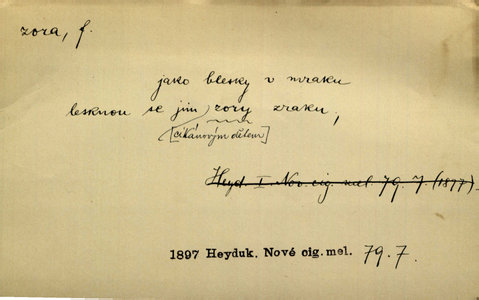 zora, f.
jako blesky v mraku
lesknou se jim zory zraku,
[cikánovým dětem]
Heyd. I. Nov. cig. mel. 79. 7. (1877).
1897 Heyduk. Nové cig. mel. 79. 7.